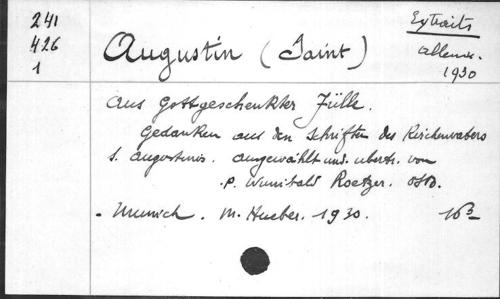 241
426
1
Augustin (Saint)
Extraits
allem.
1930
Aus gottgeschenkter Fülle.
Gedanken aus den Schriften des Kirchenvaters
S. Augustinus. ausgewählt und. übertr. von
P. Wunibald Roetzer. OSB.
- Munich. M. Hueber. 1930. 16º